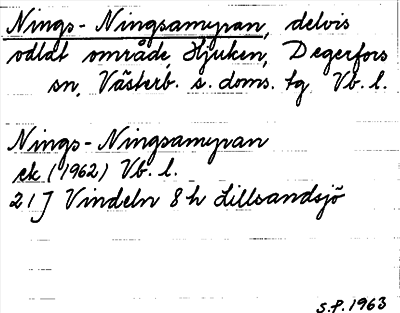 Nings-Ningsamyran, delvis
odlat område, Hjuken, Degerfors
sn, Västerb. s. doms. tg Vb. l.
Nings-Ningsamyran
ek (1962) Vb. l.
21 J Vindeln 8 h Lillsandsjö
S.P. 1963